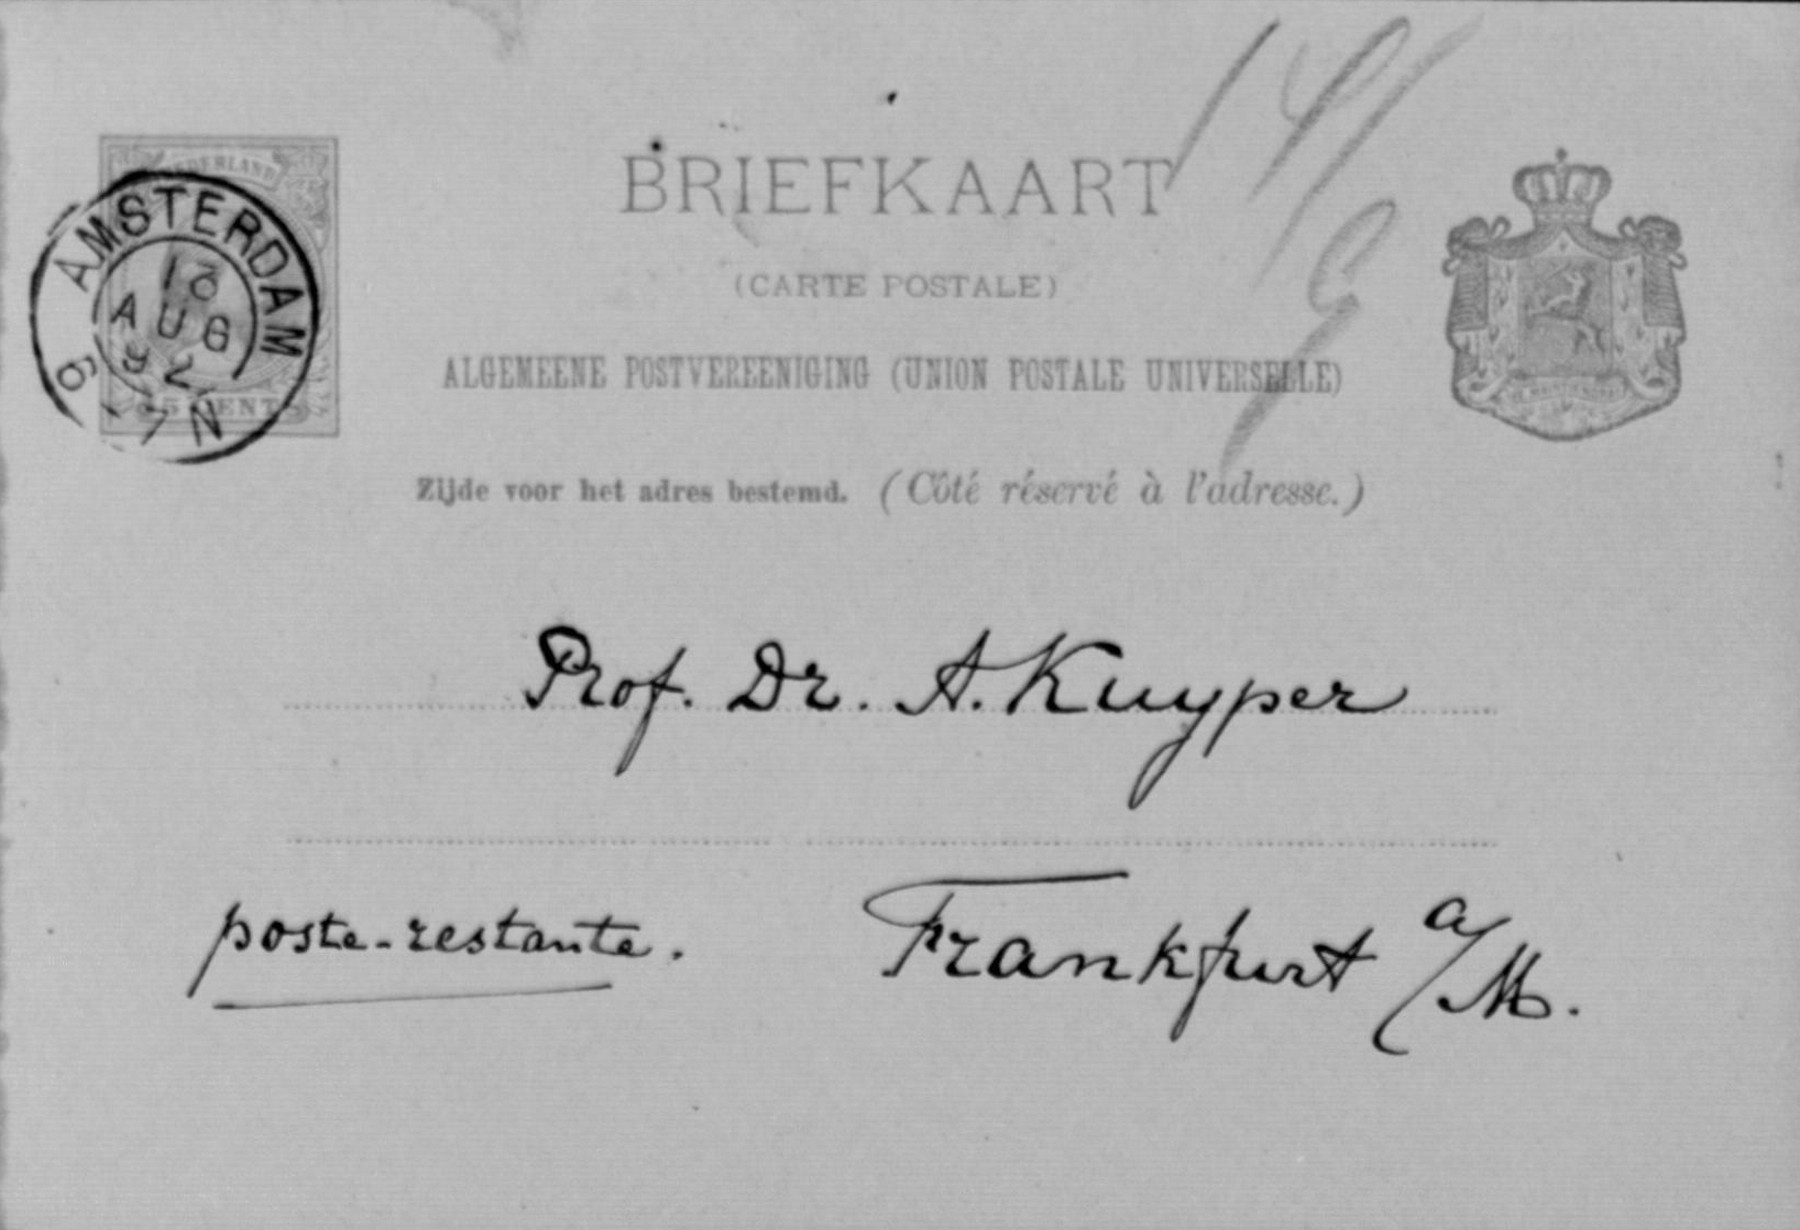 BRIEFKAART
(CARTE POSTALE)
ALGEMEENE POSTVEREENIGING (UNION POSTALE UNIVERSELLE)
Zijde voor het adres bestemd. (Côté réservé à l'adresse.)
NEDERLAND
5 CENT
AMSTERDAM
AUG
92
6-7N
Prof. Dr. A. Kuyper
poste-restante. Frankfurt a/M.